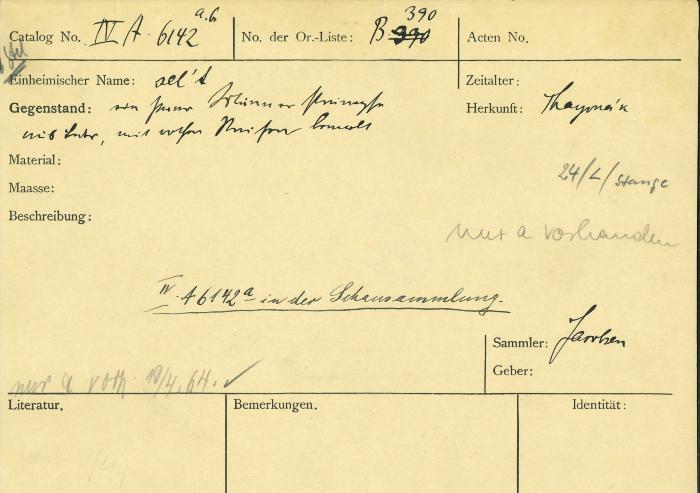 a.b
Catalog No. IV A. 6142
No. der Or.-Liste: B 390
390
Acten No.
Einheimischer Name: sel't
Zeitalter:
Gegenstand: ein Paar Männer
Herkunft:
aus Leder, mit rothen Streifen bemalt
Material:
24/L/Stange
Maasse:
Beschreibung:
nur a vorhanden
IV. A 6142a in der Schausammlung.
Sammler: Jacobsen
Geber:
nur a vorh. 10/4. 64. ✓
Literatur.
Bemerkungen.
Identität: